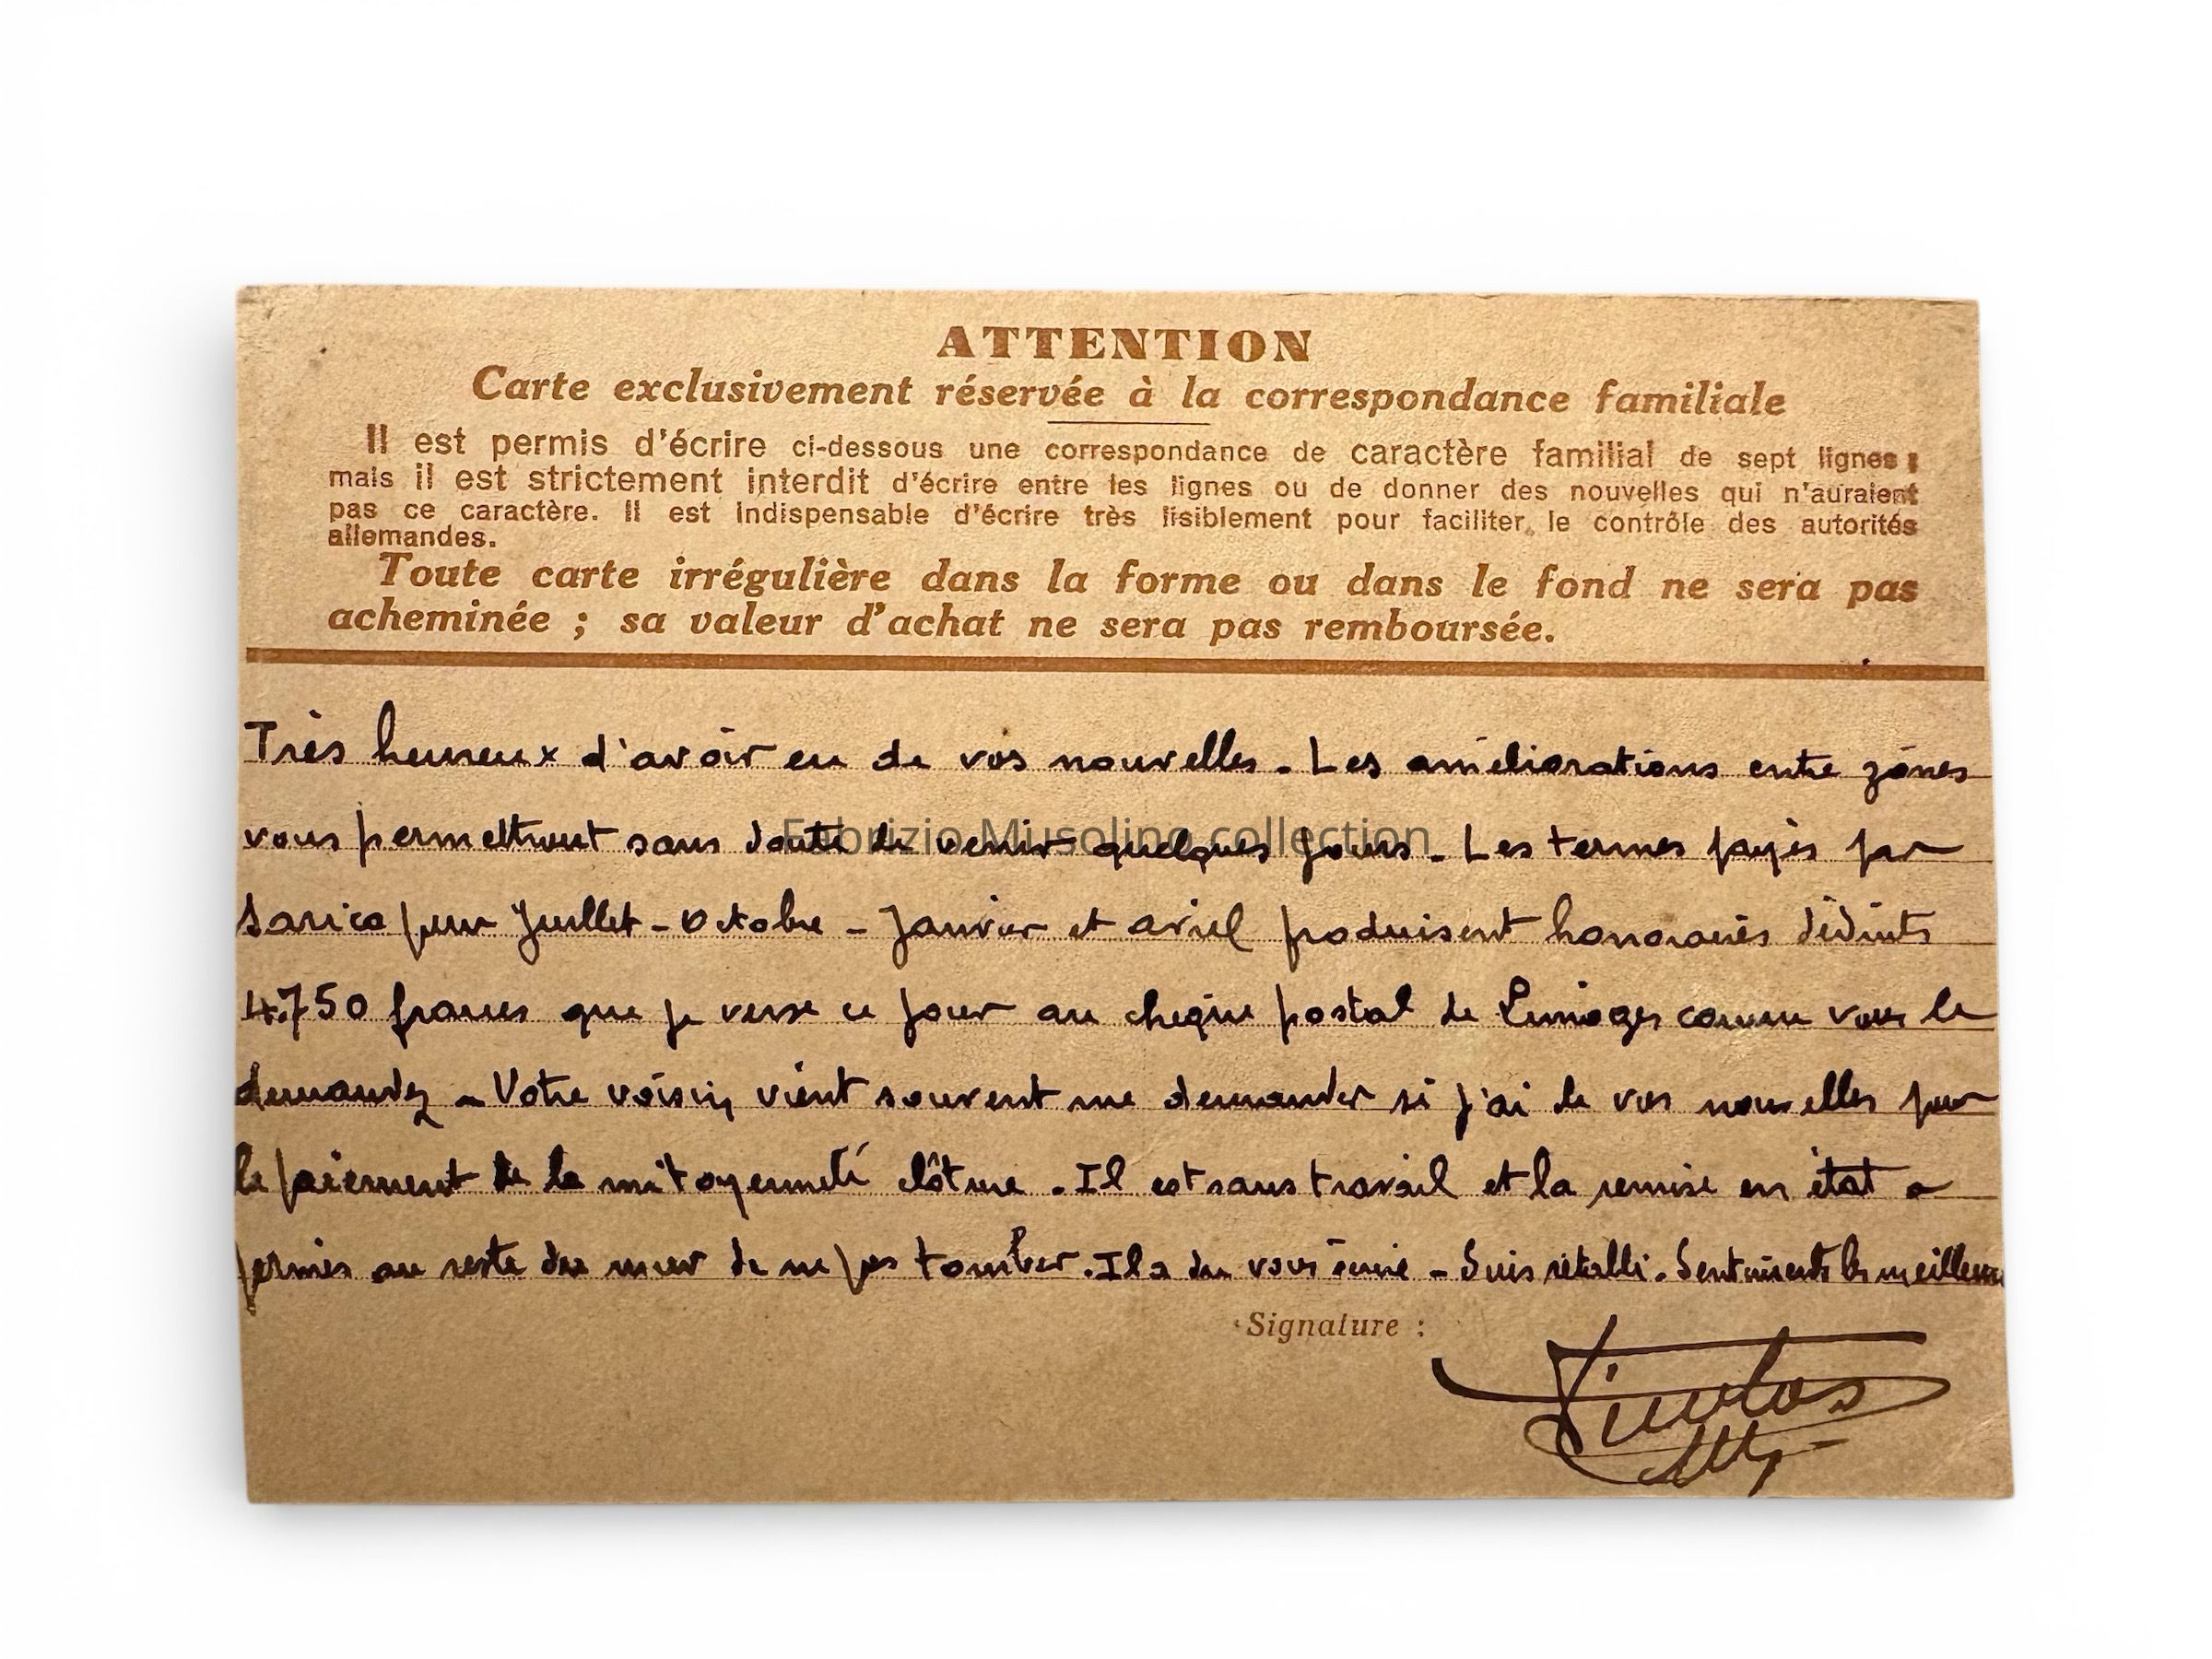 ATTENTION
Carte exclusivement réservée à la correspondance familiale
Il est permis d'écrire ci-dessous une correspondance de caractère familial de sept lignes ;
mais il est strictement interdit d'écrire entre les lignes ou de donner des nouvelles qui n'auraient
pas ce caractère. Il est indispensable d'écrire très lisiblement pour faciliter le contrôle des autorités
allemandes.
Toute carte irrégulière dans la forme ou dans le fond ne sera pas
acheminée ; sa valeur d'achat ne sera pas remboursée.
Très heureux d'avoir eu de vos nouvelles. Les améliorations entre zônes
vous permettront sans doute de venir quelques jours. Les termes payés par
Fabrizio Musolino collection
Sarica pour Juillet - Octobre - Janvier et avril produisent honoraires déduits
4.750 francs que je verse ce jour au chèque postal de Limoges comme vous le
demandez - Votre voisin vient souvent me demander si j'ai de vos nouvelles pour
le paiement de la mitoyenneté clôture. Il est sans travail et la remise en état a
permis au reste du mur de ne pas tomber. Il a du vous écrire - Suis rétabli. Sentiments les meilleurs
Signature :